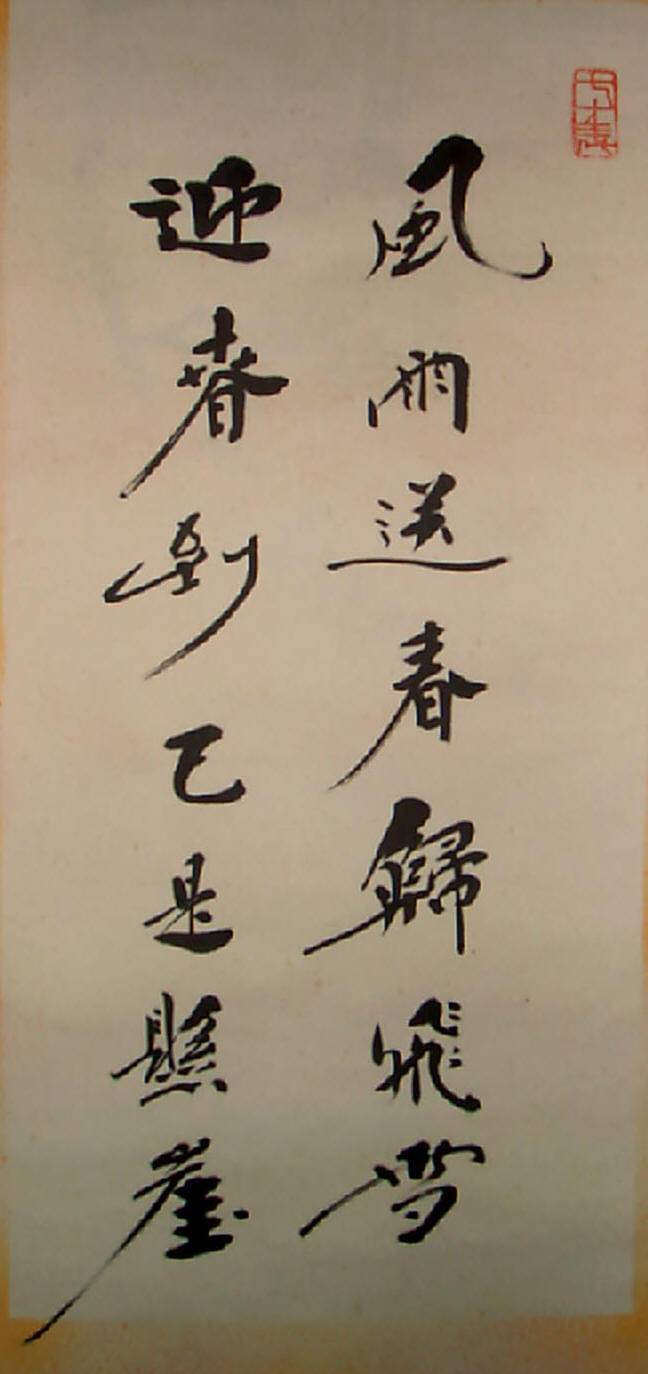 風雨送春歸飛雪
迎春到已是懸崖